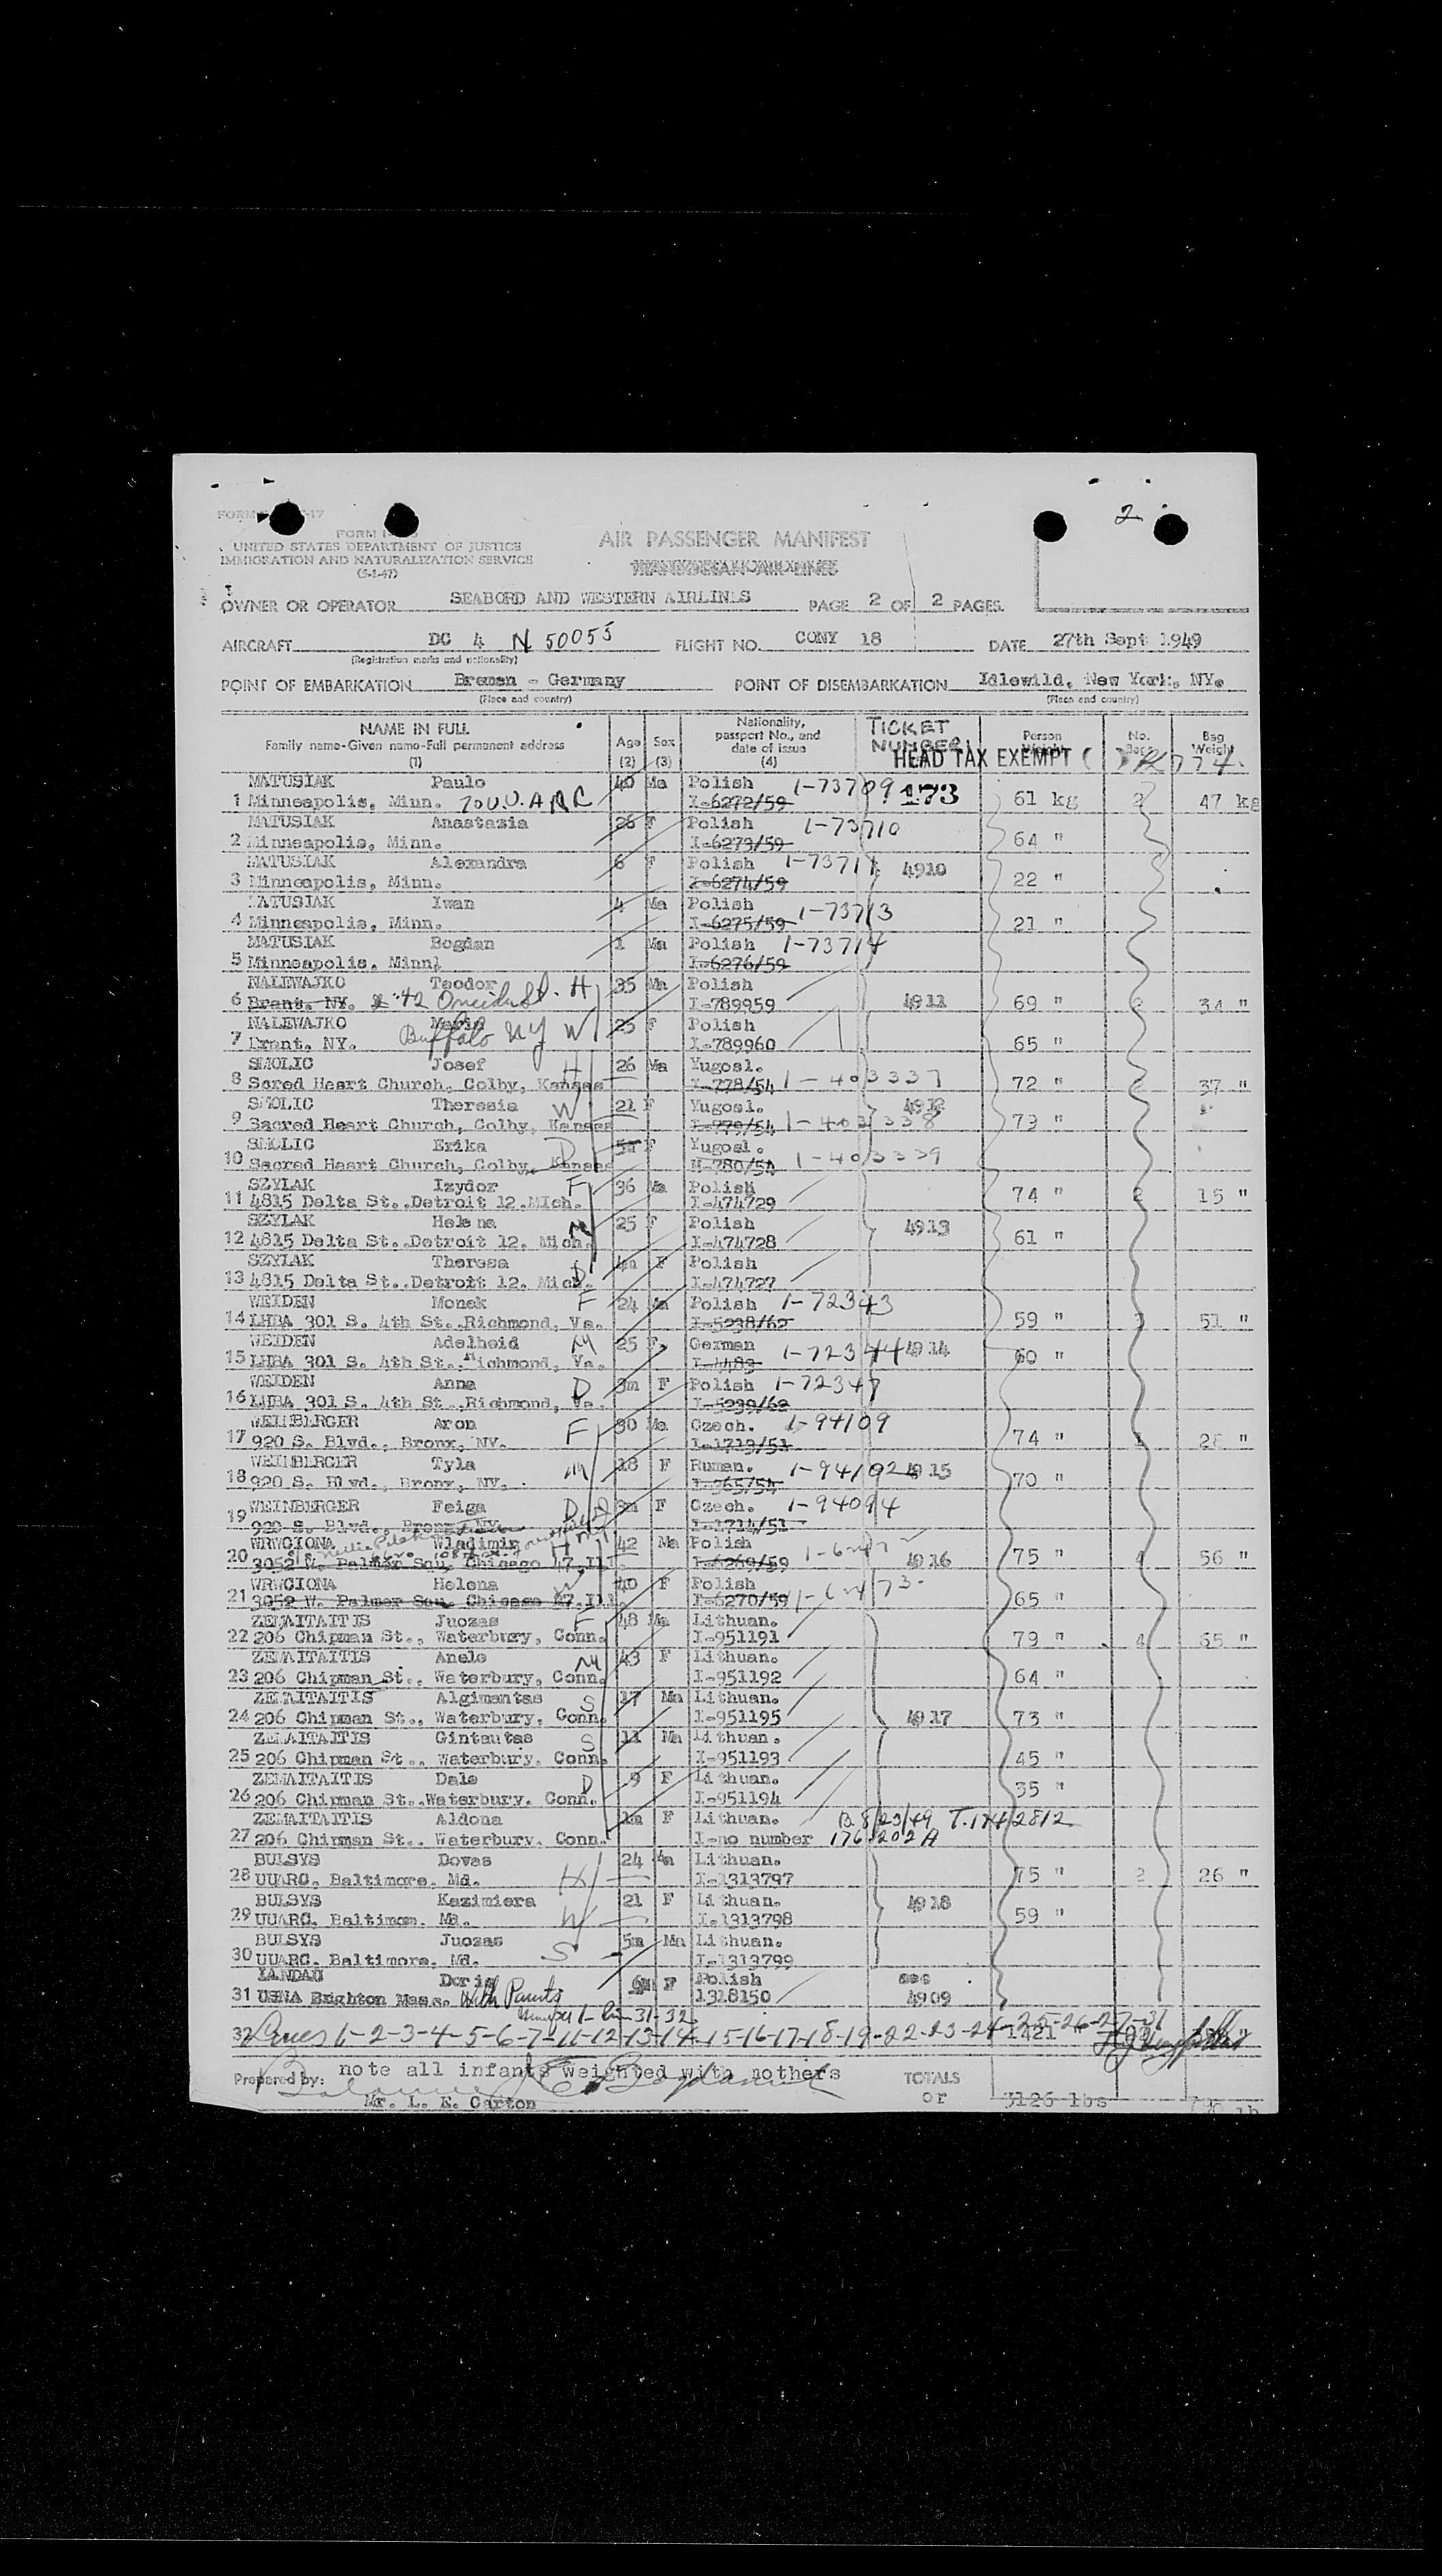 2
UNITED STATES DEPARTMENT OF JUSTICE
IMMIGRATION AND NATURALIZATION SERVICE
(5-1-47)
AIR PASSENGER MANIFEST
OWNER OR OPERATOR SEABORD AND WESTERN AIRLINES PAGE 2 OF 2 PAGES.
AIRCRAFT DC 4 N 50055 FLIGHT NO. CONY 18 DATE 27th Sept 1949
(Registration marks and nationality)
POINT OF EMBARKATION Bremen - Germany POINT OF DISEMBARKATION Idlewild, New York, NY.
(Place and country) (Place and country)
NAME IN FULL Age Sex Nationality, TICKET Person No. Bag
Family name-Given name-Full permanent address passport No., and NUMBER Weight Weight
(1) (2) (3) date of issue (4) HEAD TAX EXEMPT (
MATUSIAK Paulo 40 Ma Polish 1-73709 173
1 Minneapolis, Minn. I-6272/59 61 kg 2 47 kg
MATUSIAK Anastazia 26 F Polish 1-73710
2 Minneapolis, Minn. I-6273/59 64 "
MATUSIAK Alexandra 6 F Polish 1-73711 4910
3 Minneapolis, Minn. I-6274/59 22 "
MATUSIAK Iwan 4 Ma Polish 1-73713
4 Minneapolis, Minn. I-6275/59 21 "
MATUSIAK Bogdan 1 Ma Polish 1-73714
5 Minneapolis, Minn. I-6276/59
NALEWAJKO Teodor H 35 Ma Polish
6 Brant, NY. 42 Oneida St. I-789959 4911 69 " 34 "
NALEWAJKO Maria 25 F Polish
7 Brant, NY. Buffalo NY W I-789960 65 "
SMOLIC Josef H 26 Ma Yugosl.
8 Sacred Heart Church, Colby, Kansas I-778/54 1-403337 72 " 37 "
SMOLIC Theresia W 21 F Yugosl. 4912
9 Sacred Heart Church, Colby, Kansas I-779/54 1-403338 73 "
SMOLIC Erika D F Yugosl.
10 Sacred Heart Church, Colby, Kansas 1-403339
SZYLAK Izydor F 36 Ma Polish
11 4815 Delta St., Detroit 12, Mich. I-474729 74 " 2 15 "
SZYLAK Helena M 25 F Polish 4913
12 4815 Delta St., Detroit 12, Mich. I-474728 61 "
SZYLAK Theresa D 4m F Polish
13 4815 Delta St., Detroit 12, Mich. I-474727
WEIDEN Monek F 24 Ma Polish 1-72343
14 LHBA 301 S. 4th St., Richmond, Va. I-5238/62 59 " 51 "
WEIDEN Adelheid M 25 F German 1-72344 4914
15 LHBA 301 S. 4th St., Richmond, Va. I-4483 60 "
WEIDEN Anna D 3m F Polish 1-72347
16 LHBA 301 S. 4th St., Richmond, Va. I-5239/62
WEINBERGER Aron F 30 Ma Czech. 1-94109
17 920 S. Blvd., Bronx, NY. I-1713/51 74 "
WEINBERGER Tyla M 18 F Ruman. 1-94102 4915
18 920 S. Blvd., Bronx, NY. I-965/54 70 "
WEINBERGER Feiga D F Czech. 1-94094
19 920 S. Blvd., Bronx, NY. I-1714/51
WRWCIONA Wladimir H 42 Ma Polish
20 3052 W. Palmer Squ. Chicago 47, Ill. I-6269/59 4916 75 " 4 56 "
WRWCIONA Helena W 40 F Polish
21 3052 W. Palmer Squ. Chicago 47, Ill. I-6270/59 65 "
ZEMAITAITIS Juozas F 48 Ma Lithuan.
22 206 Chipman St., Waterbury, Conn. I-951191 79 " 4 65 "
ZEMAITAITIS Anele M 43 F Lithuan.
23 206 Chipman St., Waterbury, Conn. I-951192 64 "
ZEMAITAITIS Algimantas S 17 Ma Lithuan.
24 206 Chipman St., Waterbury, Conn. I-951195 4917 73 "
ZEMAITAITIS Gintautas S 11 Ma Lithuan.
25 206 Chipman St., Waterbury, Conn. I-951193 45 "
ZEMAITAITIS Dale D 9 F Lithuan.
26 206 Chipman St., Waterbury, Conn. I-951194 35 "
ZEMAITAITIS Aldona 1m F Lithuan. B. 8/23/49
27 206 Chipman St., Waterbury, Conn. I-no number
BULSYS Dovas H 24 Ma Lithuan.
28 UUARC, Baltimore, Md. I-1313797 75 " 2 26 "
BULSYS Kazimiera 21 F Lithuan. 4918
29 UUARC, Baltimore, Md. W I-1313798 59 "
BULSYS Juozas 5m Ma Lithuan.
30 UUARC, Baltimore, Md. S I-1313799
LANDAU Doris F Polish see
31 USNA Brighton Mass. With Parents 1318150 4909
32 Lines 1-2-3-4-5-6-7-11-12-13-14-15-16-17-18-19-22-23-24-25-26-27-31 1421
Prepared by: note all infants weighted with mothers TOTALS
Mr. L. E. Carton or 3126 lbs